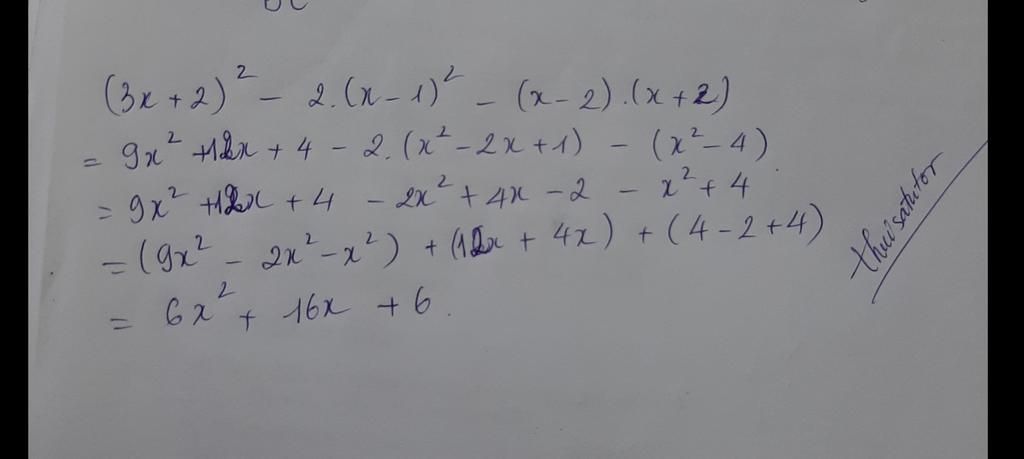 (3x + 2)² - 2.(x - 1)² - (x - 2).(x + 2)
= 9x² + 12x + 4 - 2.(x² - 2x + 1) - (x² - 4)
= 9x² + 12x + 4 - 2x² + 4x - 2 - x² + 4
= (9x² - 2x² - x²) + (12x + 4x) + (4 - 2 + 4)
= 6x² + 16x + 6.
thuisatutor